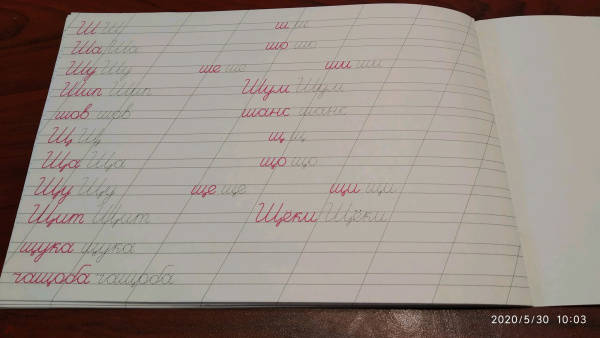 Ш Ш ш ш
Ша Ша шо шо
Шу Шу ше ше ши ши
Шип Шип Шум Шум
шов шов шанс шанс
Щ Щ щ щ
Ща Ща що що
Щу Щу ще ще щи щи
Щит Щит Щеки Щеки
щука щука
чащоба чащоба
2020/5/30 10:03